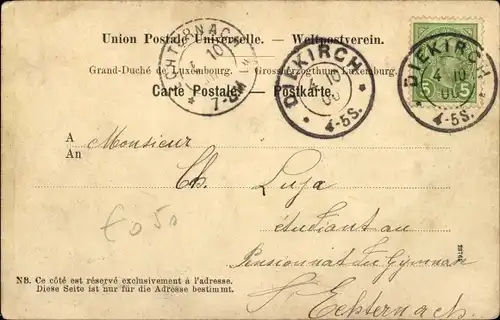 Union Postale Universelle. — Weltpostverein.
Grand-Duché de Luxembourg. Grossherzogthum Luxemburg.
Carte Postale — Postkarte.
ECHTERNACH
10
7-8M
DIEKIRCH
4 10
00
4-5S.
DIEKIRCH
4 10
00
4-5S.
5 5
A Monsieur
An
Ch. Luja
étudiant au
Pensionnat du Gymnase
Echternach.
€0 50
NB. Ce côté est réservé exclusivement à l'adresse.
Diese Seite ist nur für die Adresse bestimmt.